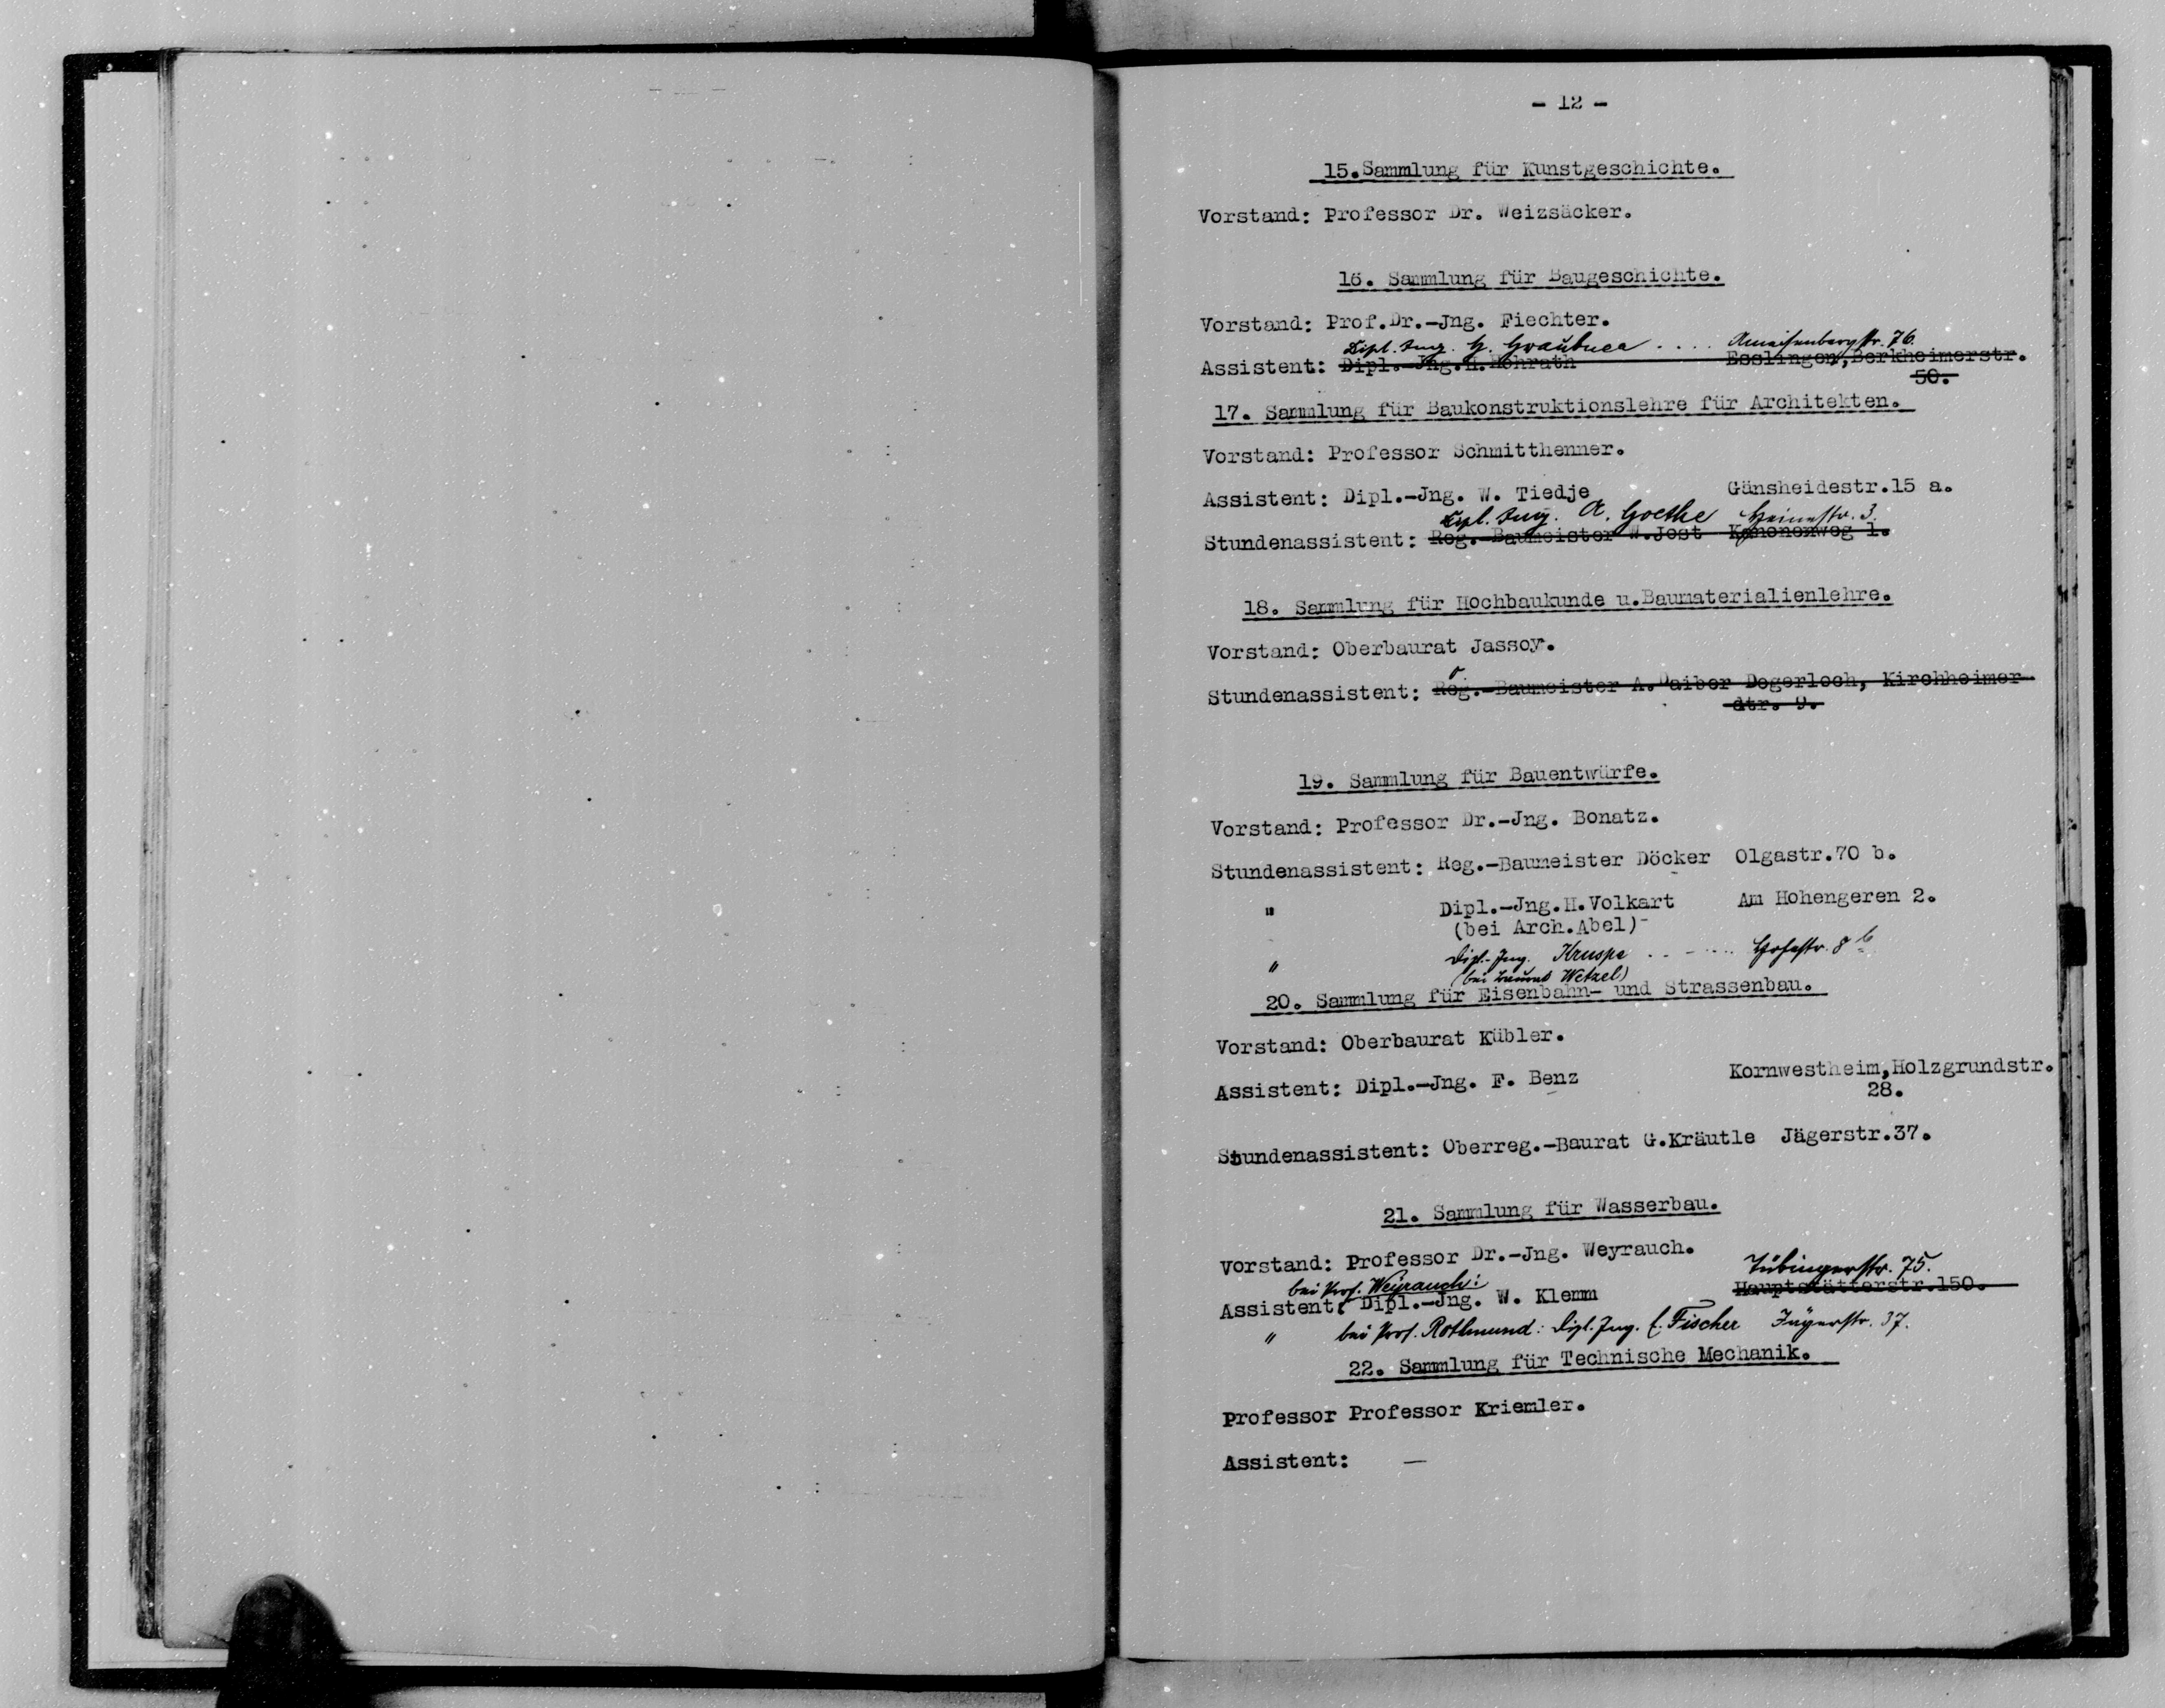 - 12 -
15.Sammlung für Kunstgeschichte.
Vorstand: Professor Dr. Weizsäcker.
16. Sammlung für Baugeschichte.
Vorstand: Prof.Dr.-Jng. Fiechter.
Dipl. Ing. G. Graubner .... Ameisenbergstr. 76.
Assistent: Dipl.-Jng.H.Rohrath Esslingen,Berkheimerstr.
50.
17. Sammlung für Baukonstruktionslehre für Architekten.
Vorstand: Professor Schmitthenner.
Assistent: Dipl.-Jng. W. Tiedje Gänsheidestr.15 a.
Dipl. Ing. A. Goethe Heinestr. 3.
Stundenassistent: Reg.-Baumeister W.Jost Kanonenweg 1.
18. Sammlung für Hochbaukunde u.Baumaterialienlehre.
Vorstand: Oberbaurat Jassoy.
Stundenassistent: Reg.-Baumeister A.Daiber Degerloch, Kirchheimer-
str. 9.
19. Sammlung für Bauentwürfe.
Vorstand: Professor Dr.-Jng. Bonatz.
Stundenassistent: Reg.-Baumeister Döcker Olgastr.70 b.
" Dipl.-Jng.H.Volkart Am Hohengeren 2.
(bei Arch.Abel)-
" Dipl.-Ing. Kruspe ....... 8 b
(bei Wetzel)
20. Sammlung für Eisenbahn- und Strassenbau.
Vorstand: Oberbaurat Kübler.
Assistent: Dipl.-Jng. F. Benz Kornwestheim,Holzgrundstr.
28.
Stundenassistent: Oberreg.-Baurat G.Kräutle Jägerstr.37.
21. Sammlung für Wasserbau.
Vorstand: Professor Dr.-Jng. Weyrauch.
Tübingerstr. 75.
bei Prof. Weyrauch:
Assistent: Dipl.-Jng. W. Klemm Hauptstätterstr.150.
" bei Prof. Rothmund: Dipl. Ing. Fischer Jägerstr. 37.
22. Sammlung für Technische Mechanik.
Professor Professor Kriemler.
Assistent: —